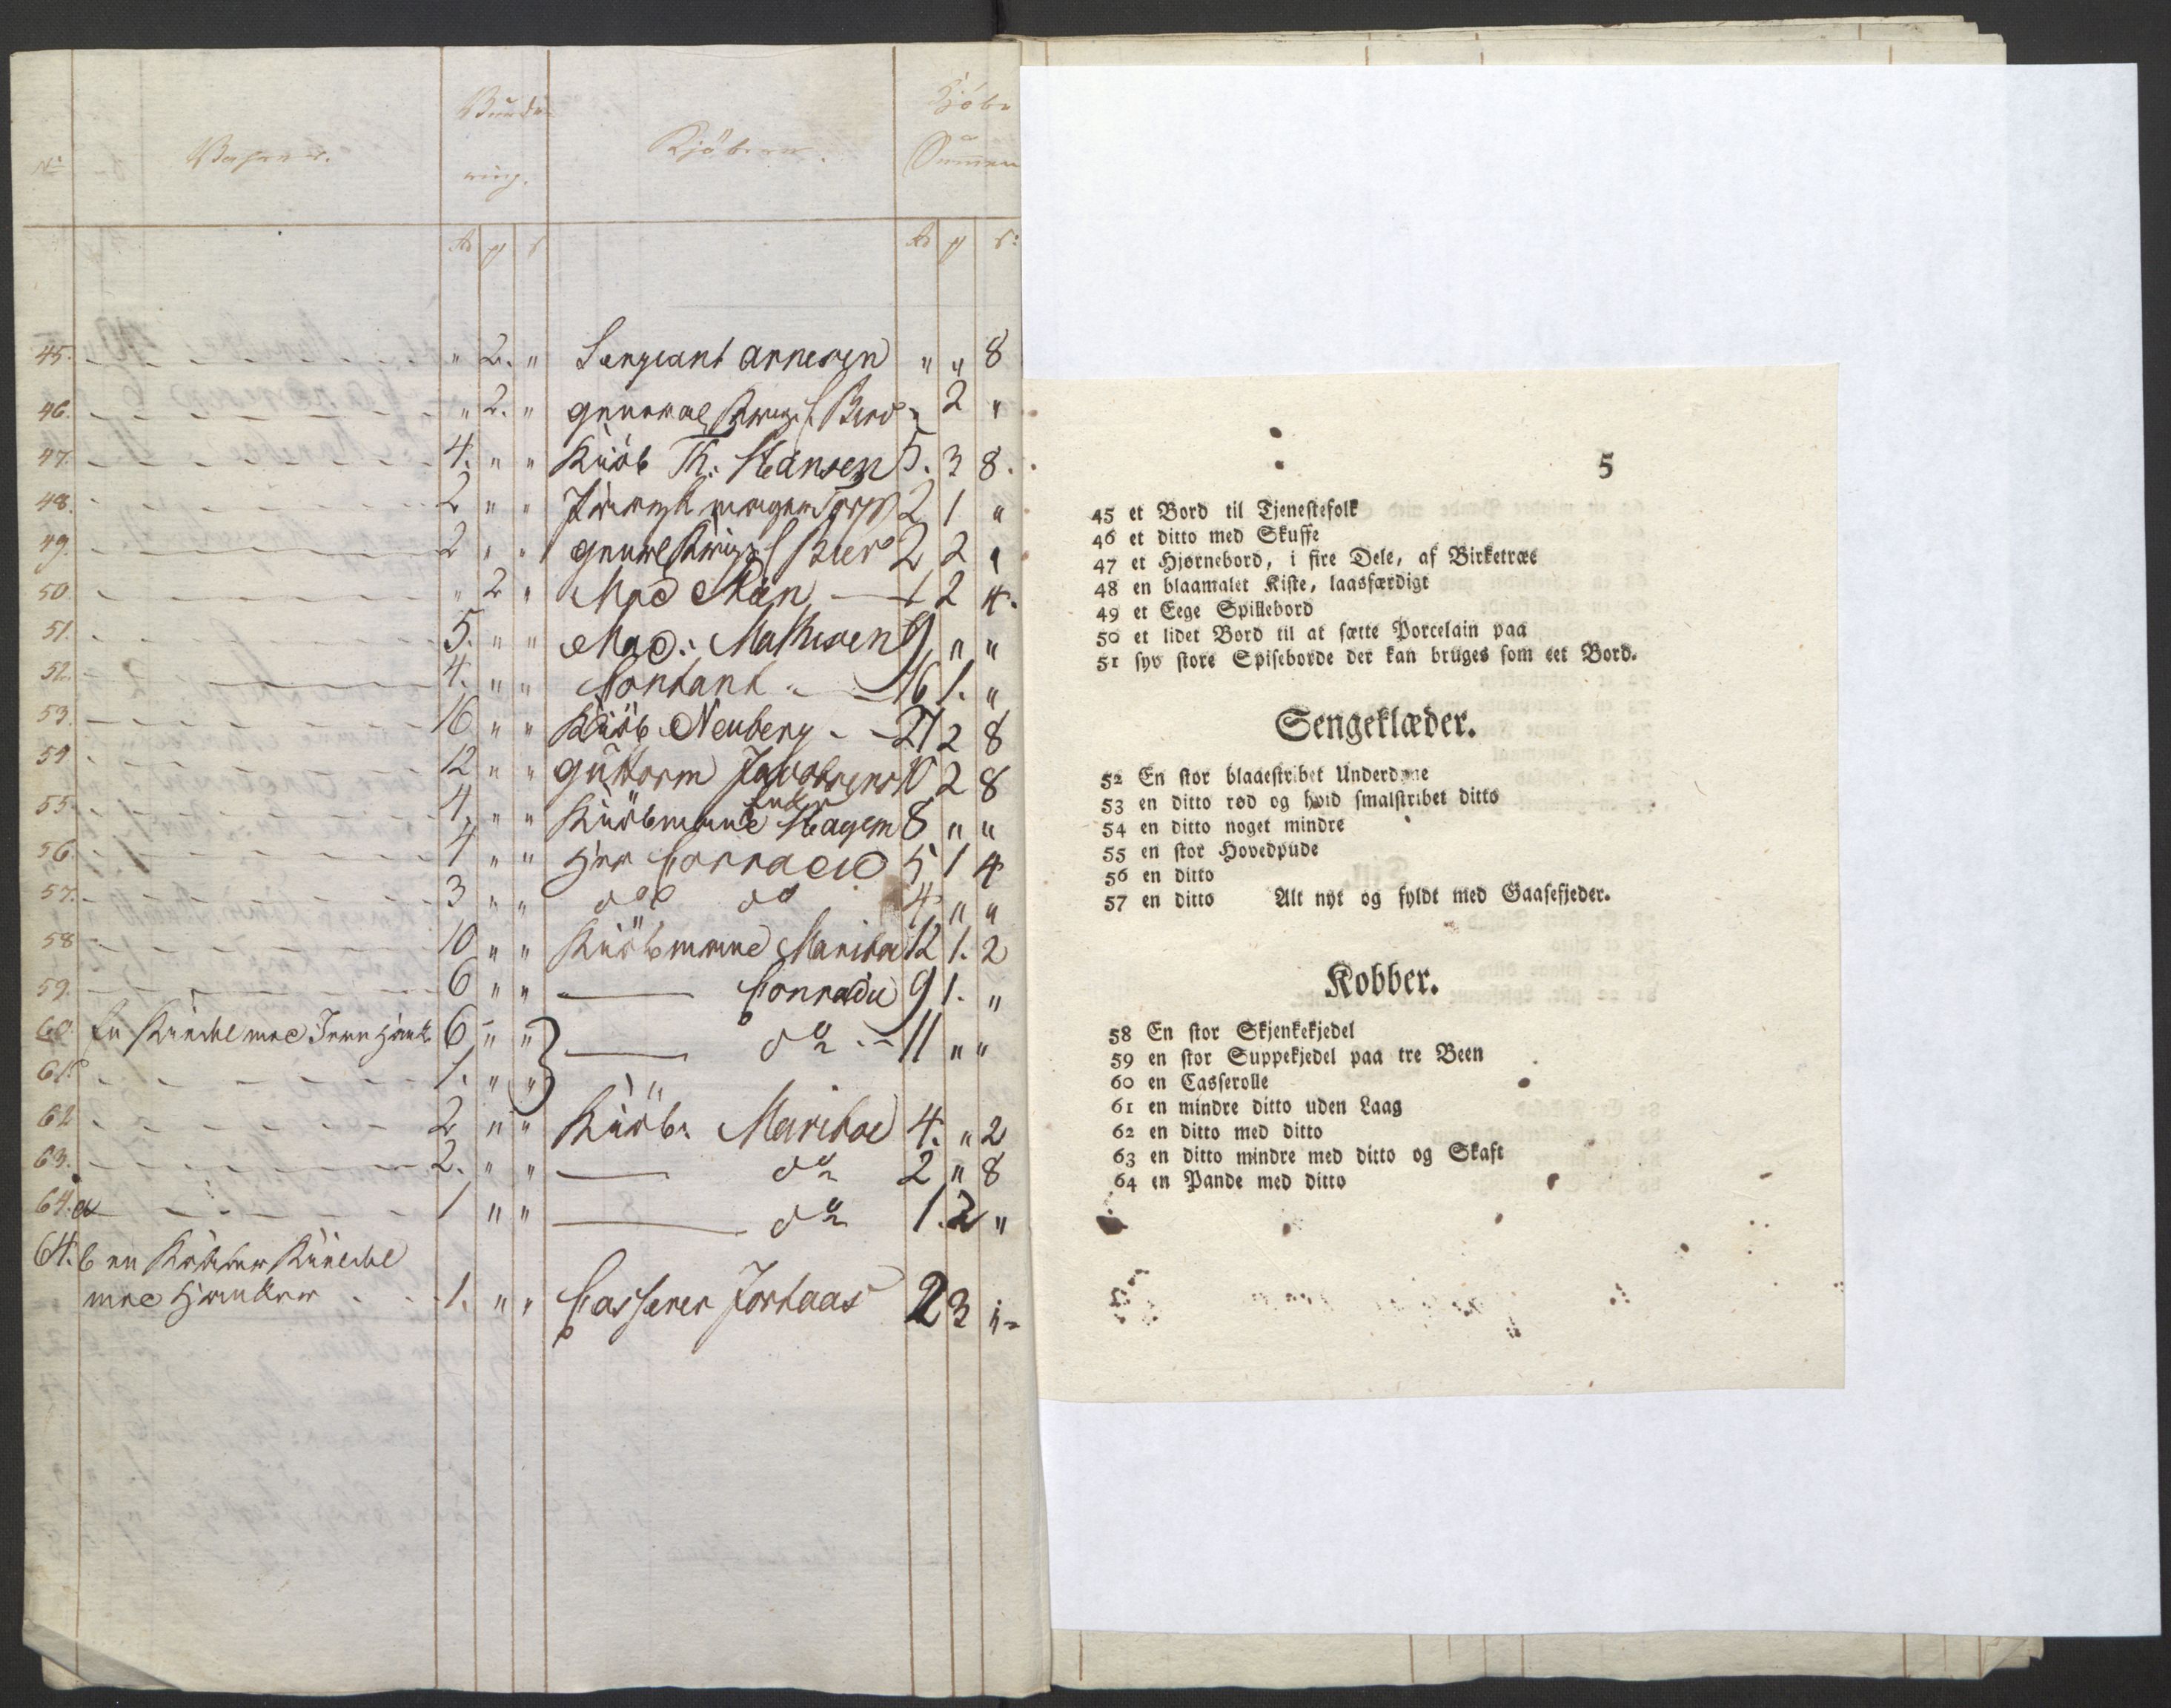 No Varerne. Vurde- Kjöbere. Kjöbe
ring. Summen
45. " 2. " Sergeant Arnesen " " 8
46. " 2. " " 2 "
47. 4. " " Kiöb Th: Hansen 5. 3 8.
48. 2 " " 2 1 "
49. 2 " " 2 2 "
50. " 2 " Mad 1 2 4.
51. 5. " " Mad: Mathesen 9 " "
52. 4. " " Contant 16 1. "
53. 16 " " Kiöb. Neuberg 21 2 8
54. 12 " " Guttorm Jacobsens 10 2 8
Enke
55. 4. " " Kiöbmand Hagem 8 " "
56. 4 " " Herr Conradi 5 1 4
57. 3 " " do do 4 " "
58 10 " " Kiöbmand Mariboe 12 1. 2
59. 6 " " Conradie 9 1. "
60. 6 " " do 11 " "
61. 1. " "
62 2 " " Kiöb. Mariboe 4. " 2
63. 2. " " do 2 " 8
64. a 1 " " do 1. 2 "
64. b en Kobber
med 1. " " Casserer Forhaas 2 3 "
5
45 et Bord til Tjenestefolk
46 et ditto med Skuffe
47 et Hjørnebord, i fire Dele, af Birketræe
48 en blaamalet Kiste, laasfærdigt
49 et Eege Spillebord
50 et lidet Bord til at sætte Porcelain paa
51 syv store Spiseborde der kan bruges som eet Bord.
Sengeklæder.
52 En stor blaaestribet Underdyne
53 en ditto rød og hvid smalstribet ditto
54 en ditto noget mindre
55 en stor Hovedpude
56 en ditto
57 en ditto Alt nyt og fyldt med Gaasefjeder.
Kobber.
58 En stor Skjenkekjedel
59 en stor Suppekjedel paa tre Been
60 en Casserolle
61 en mindre ditto uden Laag
62 en ditto med ditto
63 en ditto mindre med ditto og Skaft
64 en Pande med ditto